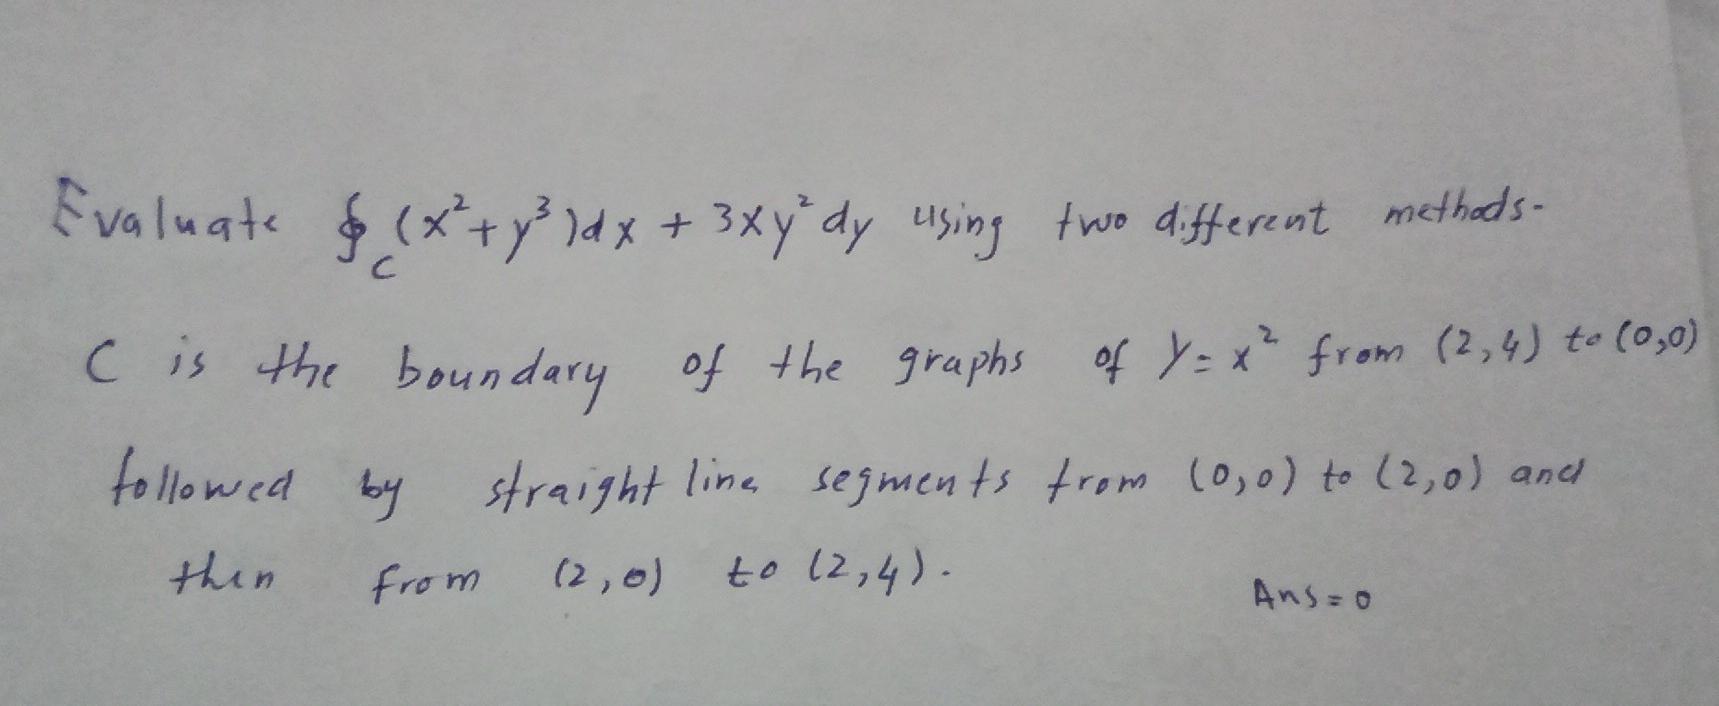 Evaluate ∮_C (x²+y³)dx + 3xy² dy using two different methods.
C is the boundary of the graphs of y=x² from (2,4) to (0,0)
followed by straight line segments from (0,0) to (2,0) and
then from (2,0) to (2,4).
Ans=0